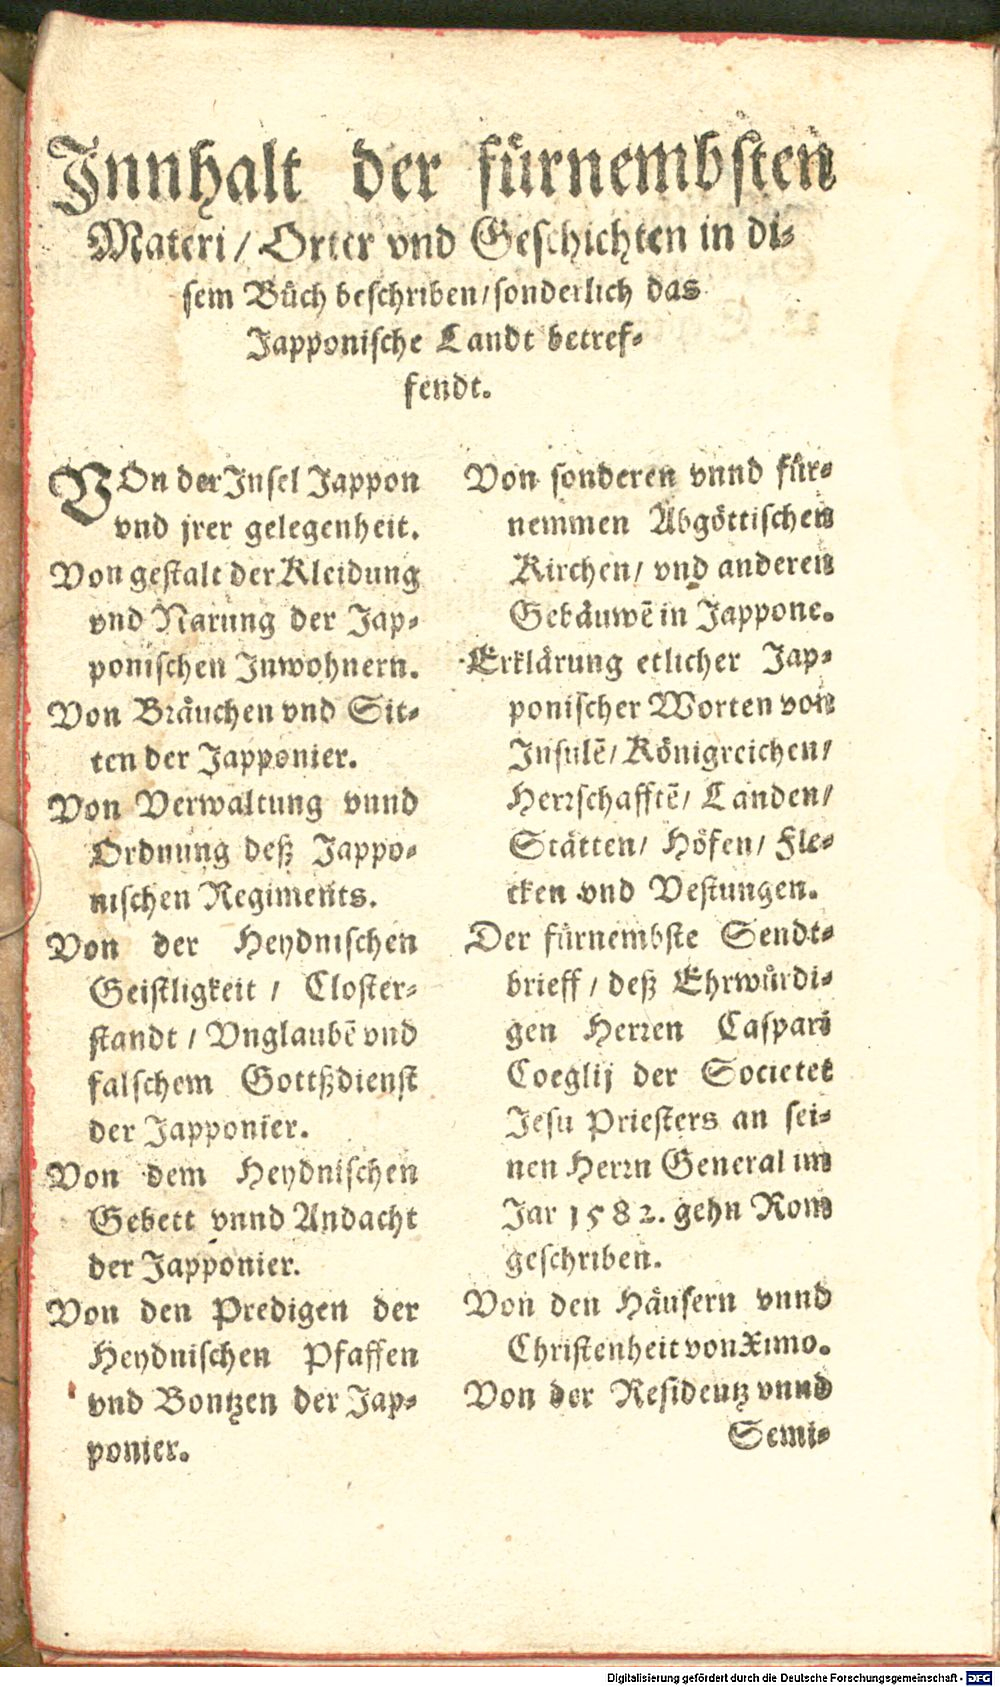 Innhalt der fürnembsten
Materi / Orter vnd Geschichten in di-
sem Bůch beschriben / sonderlich das
Japponische Landt betref-
fendt.
VOn der Insel Jappon
vnd jrer gelegenheit.
Von gestalt der Kleidung
vnd Narung der Jap-
ponischen Inwohnern.
Von Bräuchen vnd Sit-
ten der Japponier.
Von Verwaltung vnnd
Ordnung deß Jappo-
nischen Regiments.
Von der Heydnischen
Geistligkeit / Closter-
standt / Vnglaubē vnd
falschem Gottßdienst
der Japponier.
Von dem Heydnischen
Gebett vnnd Andacht
der Japponier.
Von den Predigen der
Heydnischen Pfaffen
vnd Bontzen der Jap-
ponier.
Von sonderen vnnd für-
nemmen Abgöttischen
Kirchen / vnd anderen
Gebäuwē in Jappone.
Erklärung etlicher Jap-
ponischer Worten von
Insulē / Königreichen /
Herrschafftē / Landen /
Stätten / Höfen / Fle-
cken vnd Vestungen.
Der fürnembste Sendt-
brieff / deß Ehrwürdi-
gen Herren Caspari
Coeglij der Societet
Jesu Priesters an sei-
nen Herrn General im
Jar 1582. gehn Rom
geschriben.
Von den Häusern vnnd
Christenheit von Ximo.
Von der Residentz vnnd
Semi-
Digitalisierung gefördert durch die Deutsche Forschungsgemeinschaft - DFG